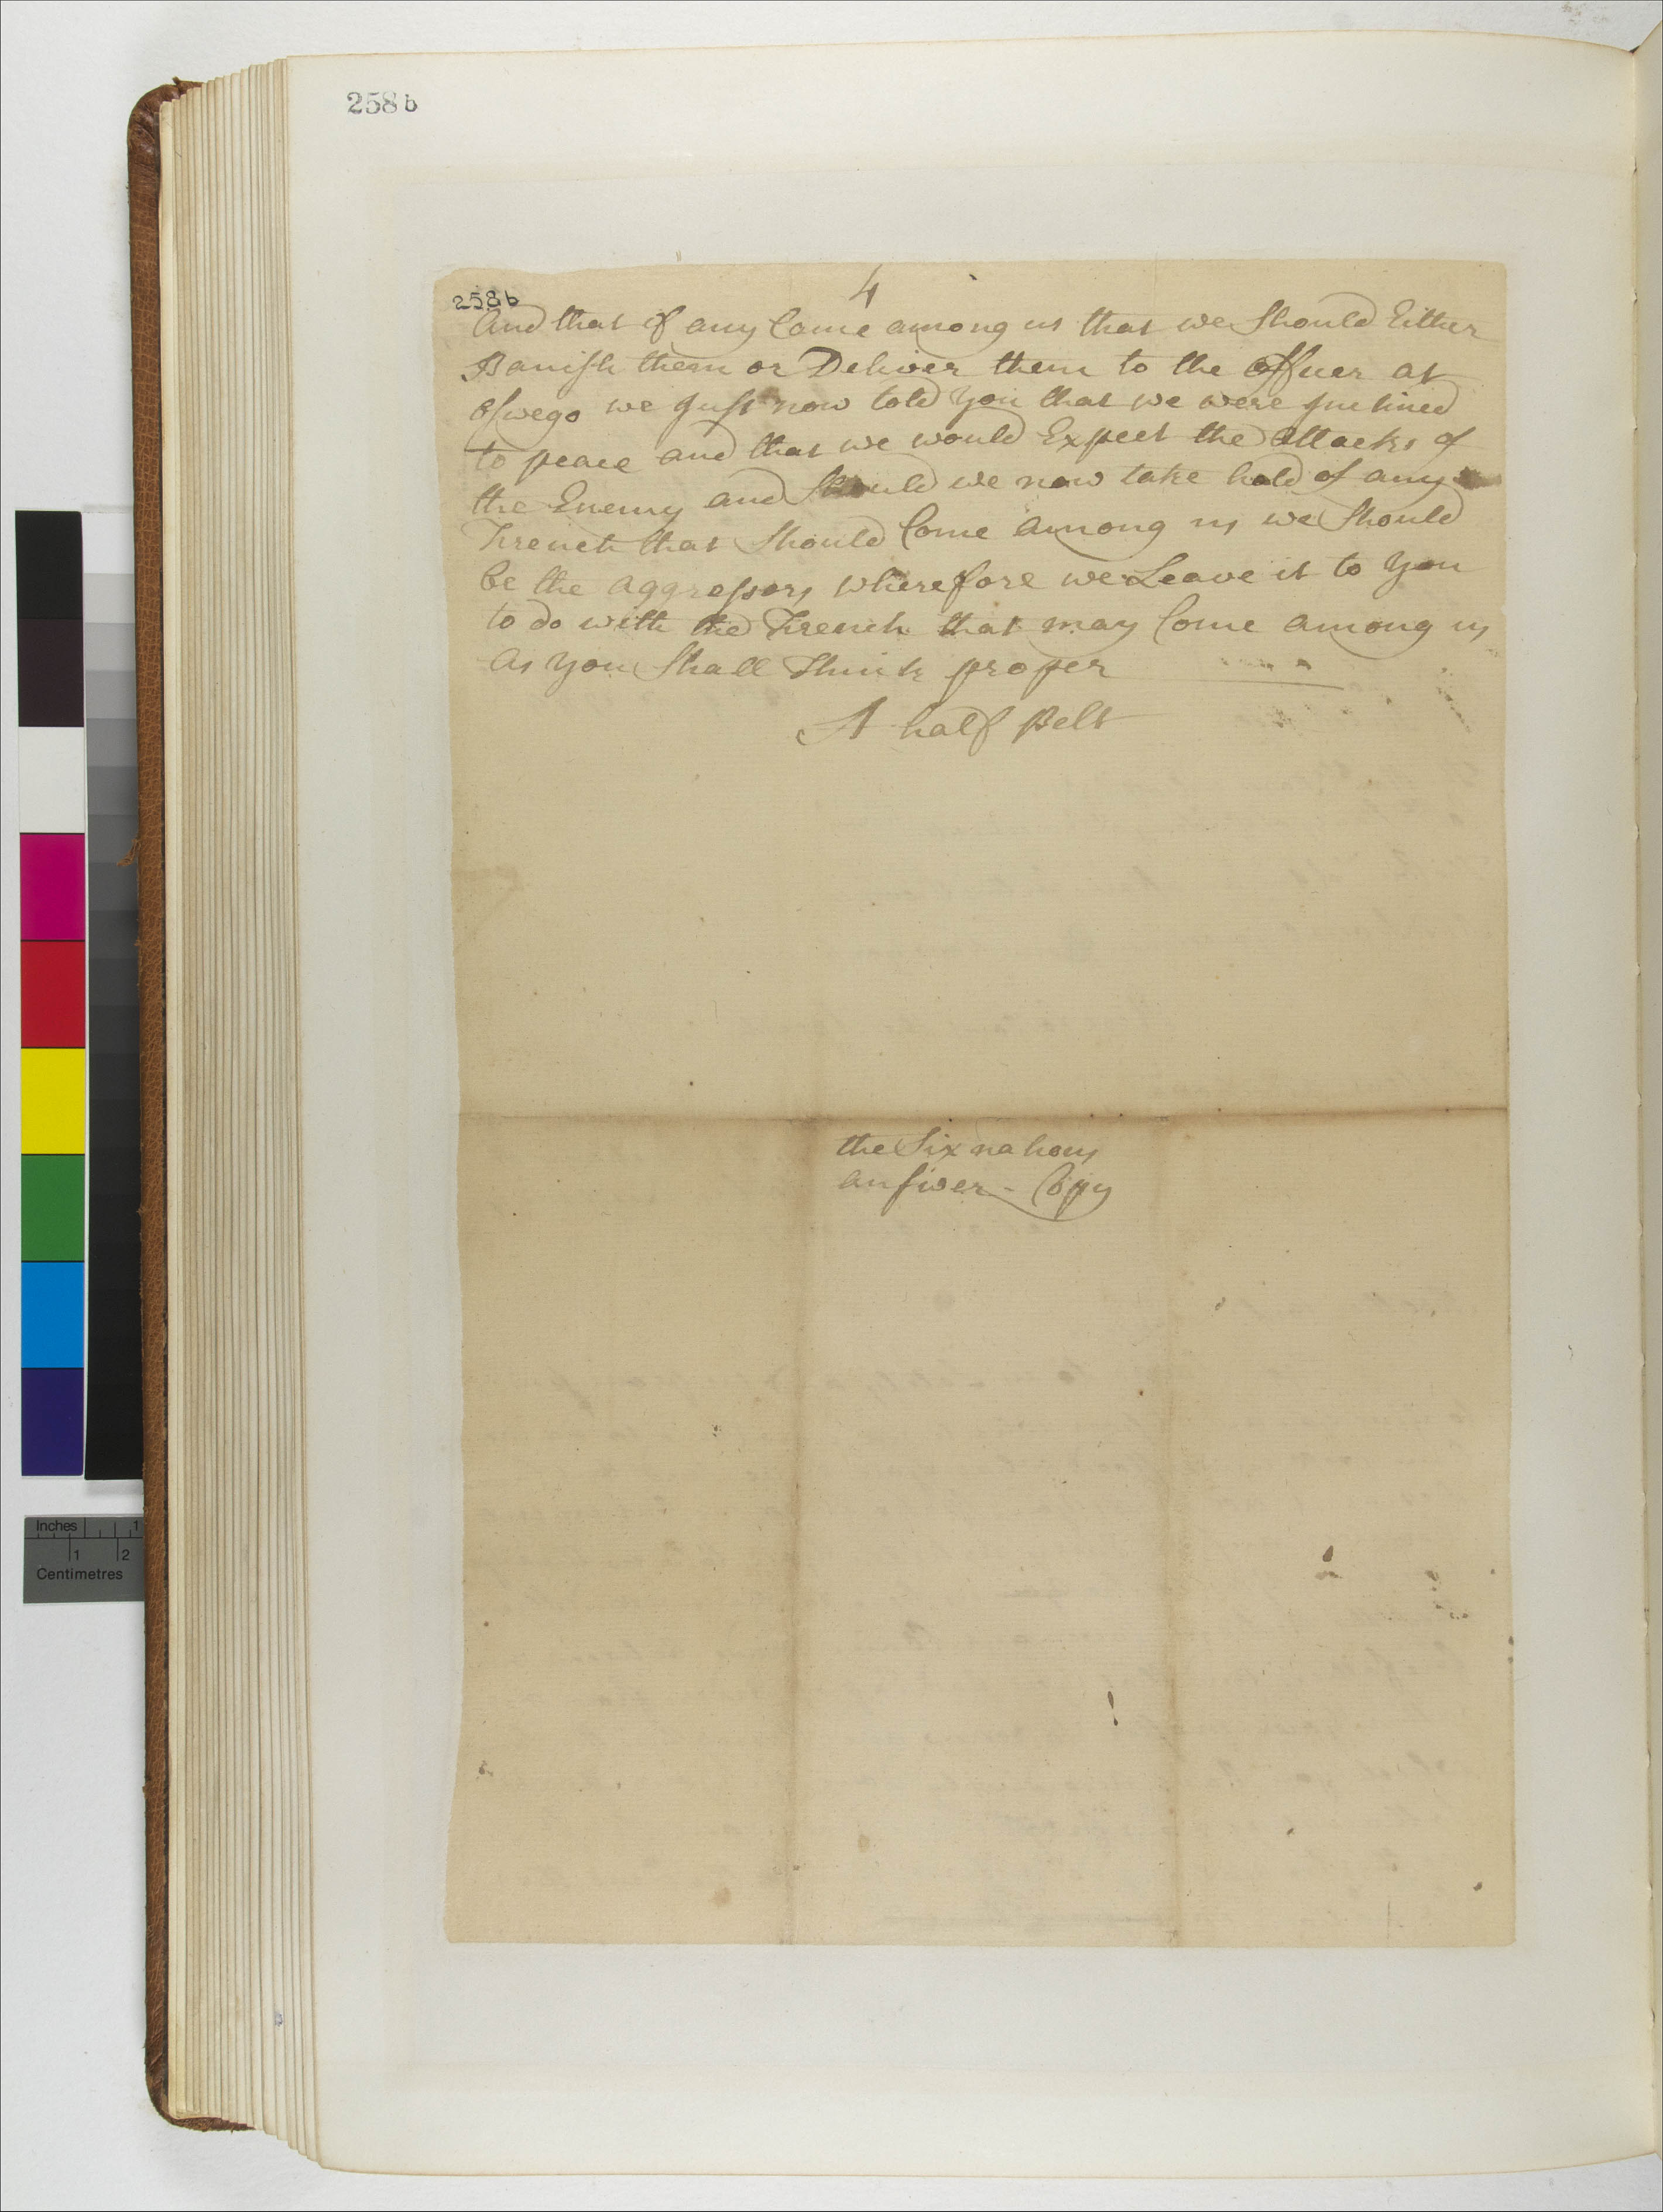 258 b
4
258b
And that if any Come among us that we Should Either
Banish them or Deliver them to the officer at
Oswego we Just now told you that we were Inclined
to peace and that we would Expect the attacks of
the Enemy and Should we now take hold of any
French that Should Come among us we Should
be the aggressors wherefore we Leave it to you
to do with the French that may Come among us
as you Shall Think proper
A half Belt
the Six nations
answer - Copy
Inches 1
1 2
Centimetres